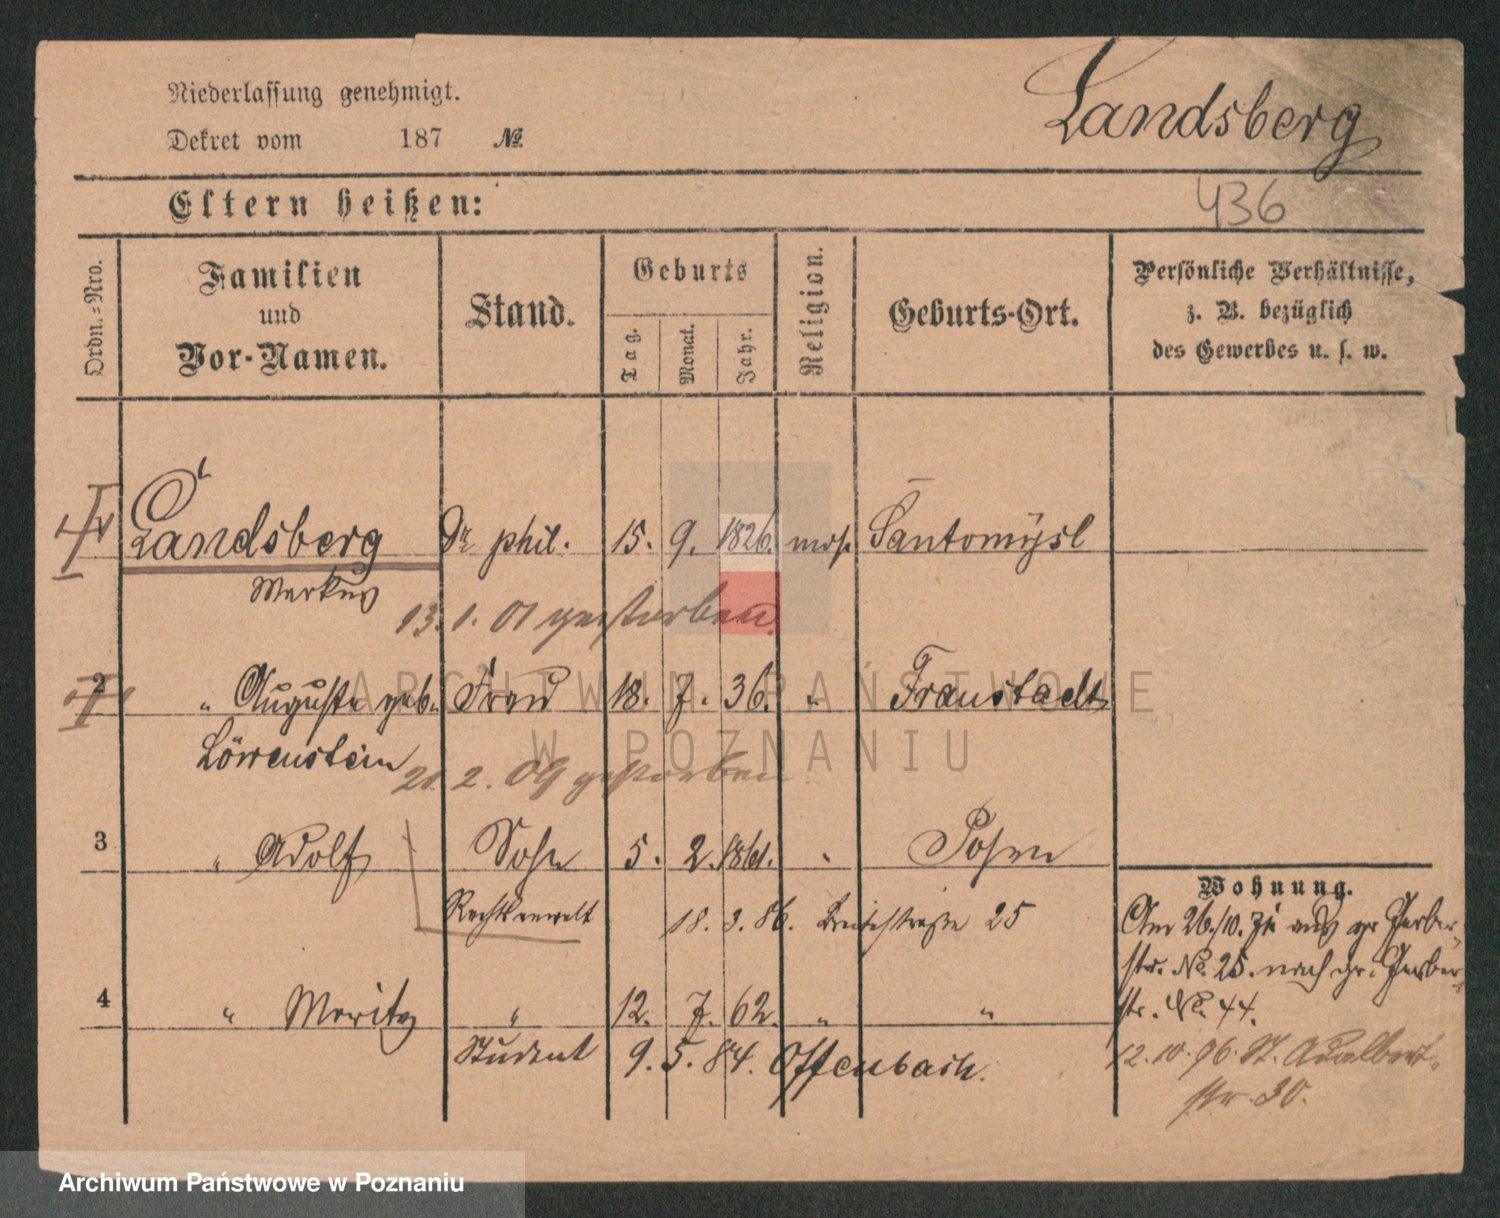 Niederlassung genehmigt.
Landsberg
Dekret vom 187 №
Eltern heißen:
436
Ordn.-Nro.
Familien
und
Vor-Namen.
Stand.
Geburts
Tag.
Monat.
Jahr.
Religion.
Geburts-Ort.
Persönliche Verhältnisse,
z. B. bezüglich
des Gewerbes u. s. w.
Landsberg Dr phil. 15. 9. 1826. mos. Santomysl
Markus
13. 1. 01 gestorben.
2 " Auguste geb. Frau 18. 7. 36. " Fraustadt
Löwenstein
20. 2. 09 gestorben
3 " Adolf Sohn 5. 2. 1861. " Posen
Rechtsanwalt 18. 3. 86. Breitestraße 25
4 " Moritz " 12. 7. 62. " "
Student 9. 5. 84. Offenbach.
Wohnung.
Am 26./10. 72 aus gr. Gerber-
str. No. 25. nach gr. Gerber-
str. No. 44.
12. 10. 96. St. Adalbert-
str. 30.
ARCHIWUM PAŃSTWOWE
W POZNANIU
Archiwum Państwowe w Poznaniu